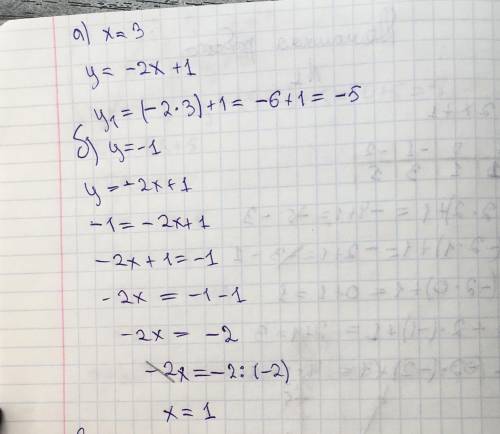 а) x = 3
y = -2x + 1
y₁ = (-2·3) + 1 = -6+1 = -5
б) y = -1
y = -2x+1
-1 = -2x+1
-2x + 1 = -1
-2x = -1 -1
-2x = -2
-2x = -2 : (-2)
x = 1